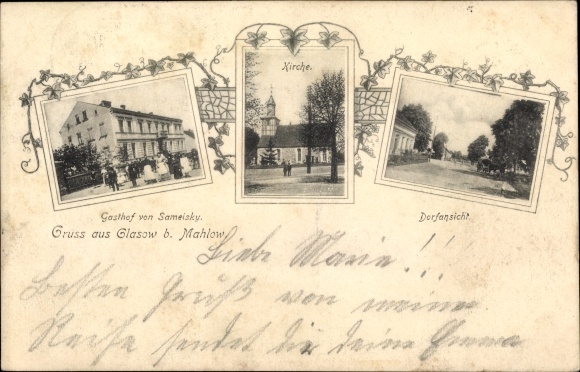 Kirche.
Gasthof von Sameisky.
Dorfansicht.
Gruss aus Glasow b. Mahlow.
Liebe Marie!!!
Besten Gruß von meiner
Reise sendet dir deine Emma